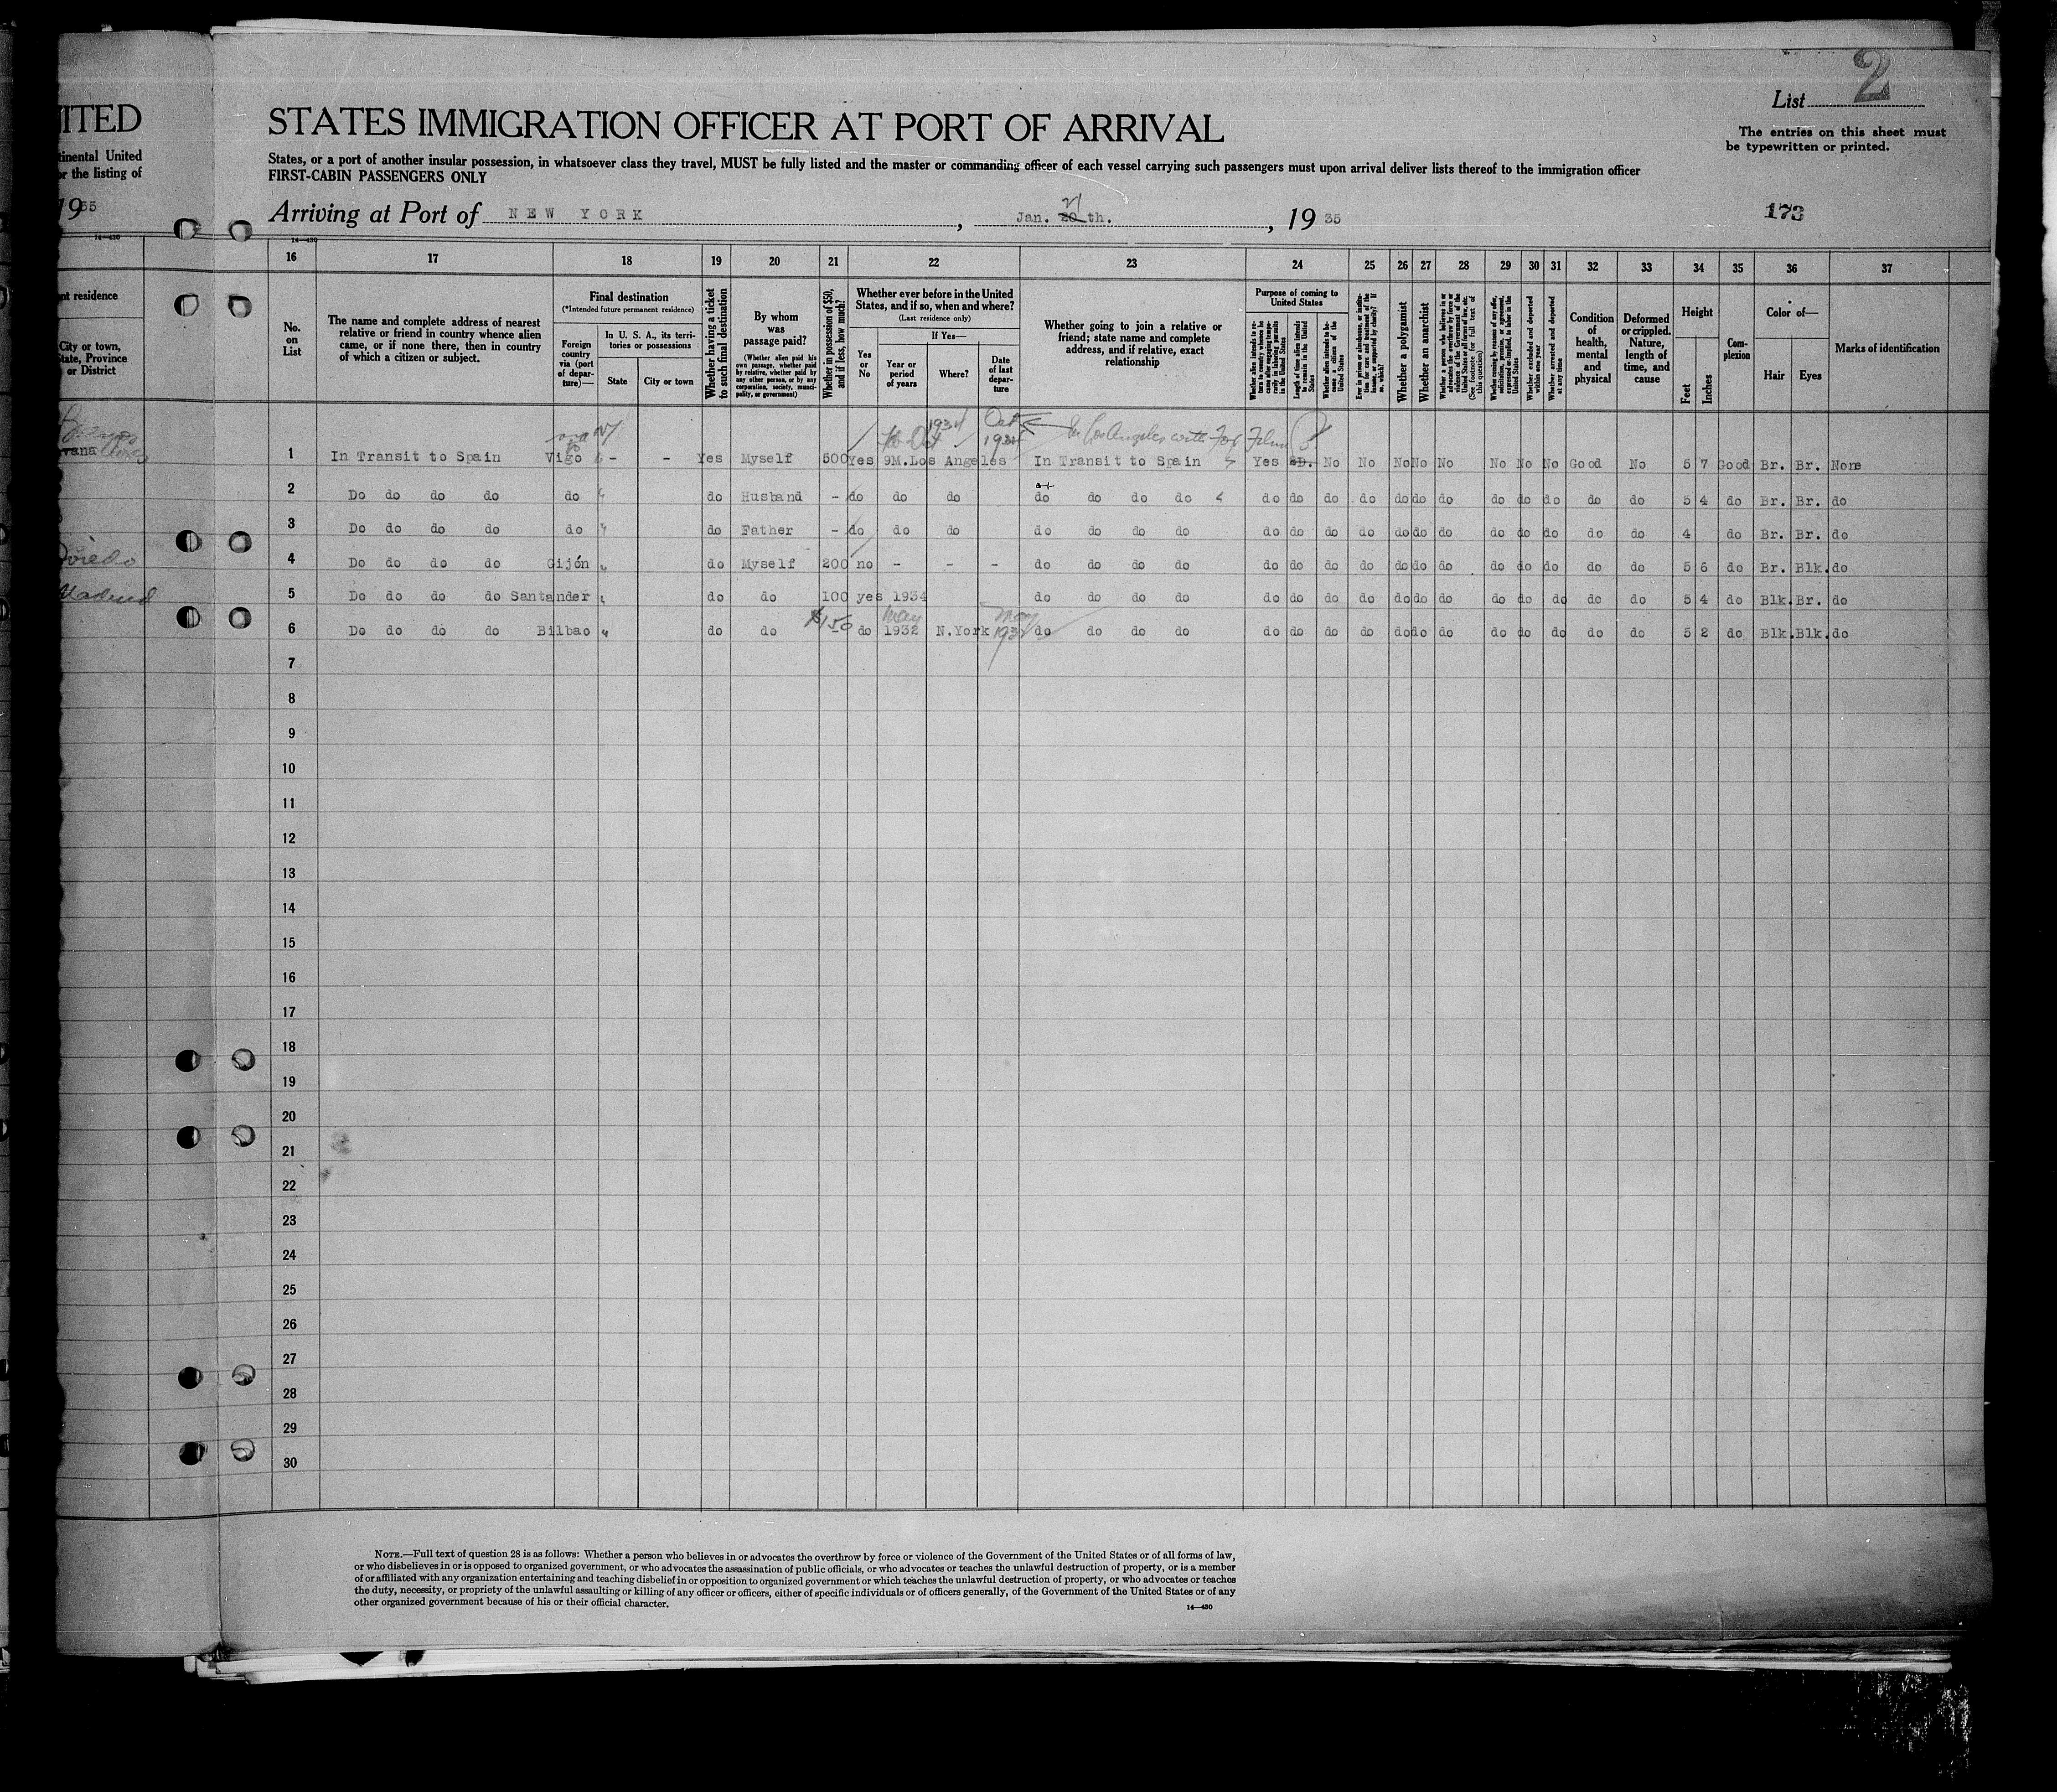 List 2
ITED
STATES IMMIGRATION OFFICER AT PORT OF ARRIVAL
The entries on this sheet must
be typewritten or printed.
tinental United
or the listing of
States, or a port of another insular possession, in whatsoever class they travel, MUST be fully listed and the master or commanding officer of each vessel carrying such passengers must upon arrival deliver lists thereof to the immigration officer
FIRST-CABIN PASSENGERS ONLY
1935
Arriving at Port of NEW YORK, Jan. 20 21 th., 1935
173
14—430
14—430
16 17 18 19 20 21 22 23 24 25 26 27 28 29 30 31 32 33 34 35 36 37
nt residence
City or town,
State, Province
or District
No.
on
List
The name and complete address of nearest
relative or friend in country whence alien
came, or if none there, then in country
of which a citizen or subject.
Final destination
(*Intended future permanent residence)
Foreign
country
via (port
of depar-
ture)—
In U. S. A., its terri-
tories or possessions
State
City or town
Whether having a ticket
to such final destination
By whom
was
passage paid?
(Whether alien paid his
own passage, whether paid
by relative, whether paid by
any other person, or by any
corporation, society, munici-
pality, or government)
Whether in possession of $50,
and if less, how much?
Whether ever before in the United
States, and if so, when and where?
(Last residence only)
Yes
or
No
If Yes—
Year or
period
of years
Where?
Date
of last
depar-
ture
Whether going to join a relative or
friend; state name and complete
address, and if relative, exact
relationship
Purpose of coming to
United States
Whether alien intends to re-
turn to country whence he
came after engaging tempo-
rarily in laboring pursuits
in the United States
Length of time alien intends
to remain in the United
States
Whether alien intends to be-
come a citizen of the
United States
Ever in prison or almshouse, or institu-
tion for care and treatment of the
insane, or supported by charity? If
so, which?
Whether a polygamist
Whether an anarchist
Whether a person who believes in or
advocates the overthrow by force or
violence of the Government of the
United States or all forms of law, etc.
(See footnote for full text of
this question)
Whether coming by reason of any offer,
solicitation, promise, or agreement,
expressed or implied, to labor in the
United States
Whether excluded and deported
within one year
Whether arrested and deported
at any time
Condition
of
health,
mental
and
physical
Deformed
or crippled.
Nature,
length of
time, and
cause
Height
Feet
Inches
Com-
plexion
Color of—
Hair
Eyes
Marks of identification
via NY
1934 Oct
Feb-Oct 1934
In Los Angeles with Fox Film
vana
1 In Transit to Spain Vigo - - Yes Myself 500 Yes 9M. Los Angeles In Transit to Spain Yes 2D. No No No No No No No No Good No 5 7 Good Br. Br. None
2 Do do do do do do Husband - do do do do do do do do do do do do do do do do do do do do 5 4 do Br. Br. do
3 Do do do do do do Father - do do do do do do do do do do do do do do do do do do do do 4 do Br. Br. do
Oviedo
4 Do do do do Gijón do Myself 200 no - - - do do do do do do do do do do do do do do do do 5 6 do Br. Blk. do
Madrid
5 Do do do do Santander do do 100 yes 1934 do do do do do do do do do do do do do do do do 5 4 do Blk. Br. do
May
6 Do do do do Bilbao do do $150 do 1932 N.York do do do do do do do do do do do do do do do do 5 2 do Blk. Blk. do
7
8
9
10
11
12
13
14
15
16
17
18
19
20
21
22
23
24
25
26
27
28
29
30
NOTE.—Full text of question 28 is as follows: Whether a person who believes in or advocates the overthrow by force or violence of the Government of the United States or of all forms of law,
or who disbelieves in or is opposed to organized government, or who advocates the assassination of public officials, or who advocates or teaches the unlawful destruction of property, or is a member
of or affiliated with any organization entertaining and teaching disbelief in or opposition to organized government or which teaches the unlawful destruction of property, or who advocates or teaches
the duty, necessity, or propriety of the unlawful assaulting or killing of any officer or officers, either of specific individuals or of officers generally, of the Government of the United States or of any
other organized government because of his or their official character.
14—430